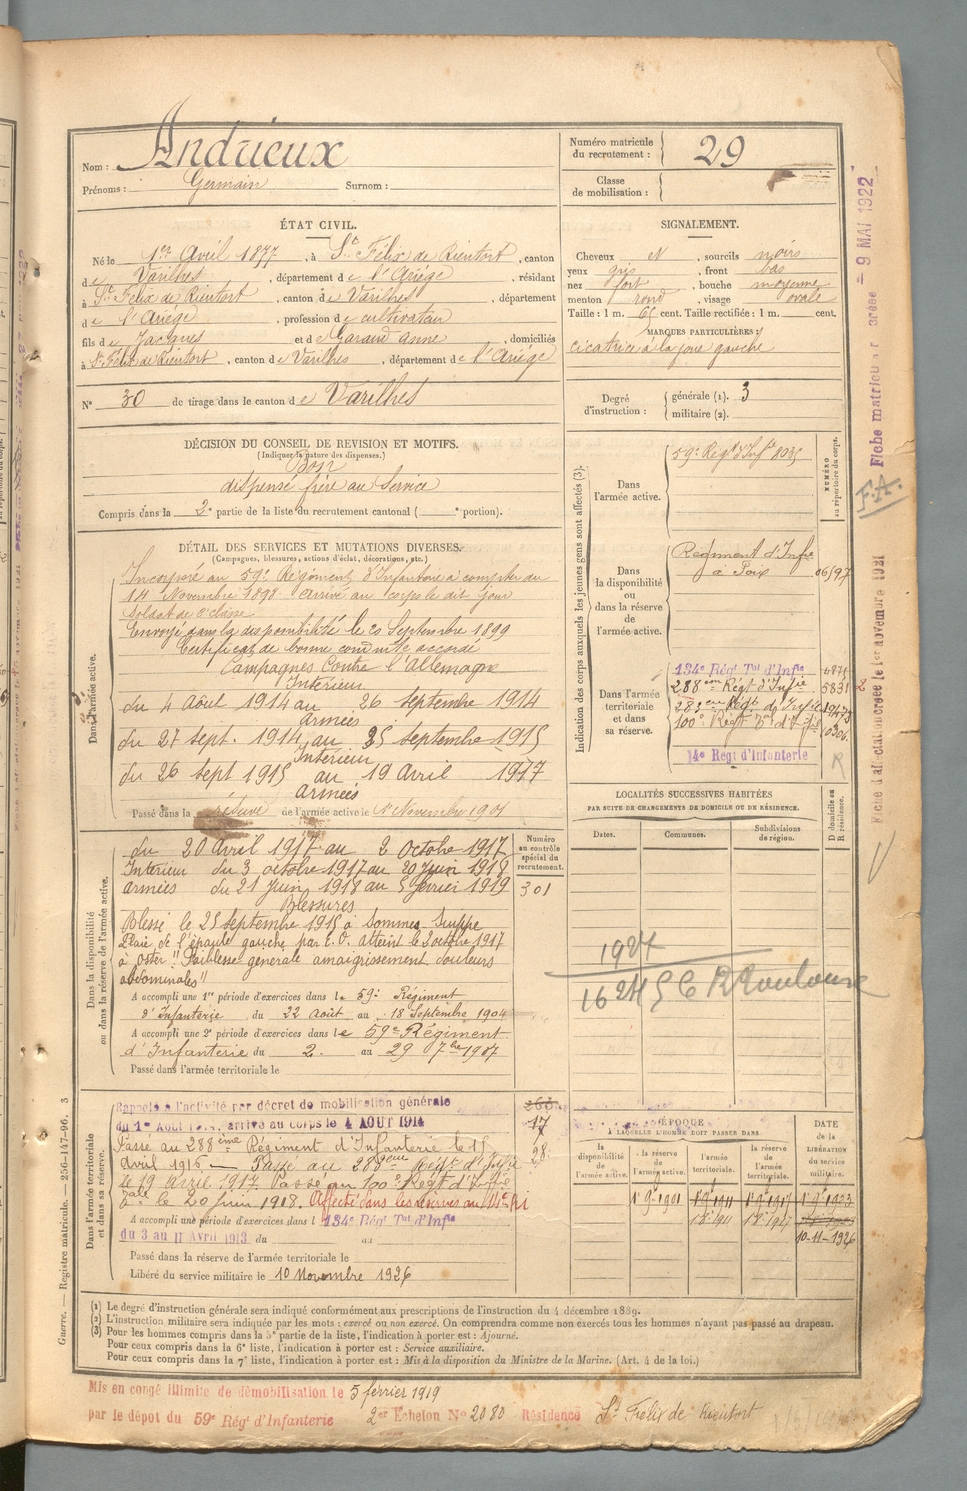 Nom : Andrieux
Prénoms : Germain Surnom :
Numéro matricule du recrutement : 29
Classe de mobilisation :
ÉTAT CIVIL.
Né le 1er Avril 1877, à St Félix de Rieutort, canton
de Varilhes, département de l'Ariège, résidant
à St Félix de Rieutort, canton de Varilhes, département
de l'Ariège, profession de cultivateur
fils de Jacques et de Garaud Anne, domiciliés
à St Félix de Rieutort, canton de Varilhes, département de l'Ariège
N° 30 de tirage dans le canton de Varilhes
SIGNALEMENT.
Cheveux N, sourcils noirs
yeux gris, front bas
nez fort, bouche moyenne
menton rond, visage ovale
Taille : 1 m. 65 cent. Taille rectifiée : 1 m. cent.
MARQUES PARTICULIÈRES :
cicatrice à la joue gauche
Degré d'instruction : générale (1). 3
militaire (2).
DÉCISION DU CONSEIL DE REVISION ET MOTIFS.
(Indiquer la nature des dispenses.)
Bon
dispensé frère au Service
Compris dans la 2e partie de la liste du recrutement cantonal ( e portion).
DÉTAIL DES SERVICES ET MUTATIONS DIVERSES.
(Campagnes, blessures, actions d'éclat, décorations, etc.)
Dans l'armée active.
Incorporé au 59e Régiment d'Infanterie à compter du
14 Novembre 1898 arrivé au corps le dit jour
soldat de 2e classe
Envoyé dans la disponibilité le 20 Septembre 1899
Certificat de bonne conduite accordé
Campagnes Contre l'Allemagne
Intérieur
du 4 Août 1914 au 26 septembre 1914
Armées
du 27 sept. 1914 au 25 septembre 1915
Intérieur
du 26 sept 1915 au 19 avril 1917
Armées
Passé dans la réserve de l'armée active le 1er Novembre 1901
Dans la disponibilité ou dans la réserve de l'armée active.
du 20 Avril 1917 au 2 Octobre 1917
Intérieur du 3 octobre 1917 au 20 Juin 1918
armées du 21 Juin 1918 au 5 février 1919
Blessures
Blessé le 25 septembre 1915 à Somme Suippe
Plaie de l'épaule gauche par E. O. atteint le 2 octobre 1917
à Oster "Faiblesse générale amaigrissement douleurs
abdominales"
A accompli une 1re période d'exercices dans le 59e Régiment
d'Infanterie du 22 Août au 18 Septembre 1904
A accompli une 2e période d'exercices dans le 59e Régiment
d'Infanterie du 2 au 29 7bre 1907
Passé dans l'armée territoriale le
Numéro au contrôle spécial du recrutement.
301
Dans l'armée territoriale et dans sa réserve.
Rappelé à l'activité par décret de mobilisation générale
du 1er Août 1914, arrivé au corps le 4 AOUT 1914
Passé au 288ème Régiment d'Infanterie le 15
Avril 1916 — Passé au 283ème Régt d'Infie
le 19 Avril 1917. Passé au 100e Régt d'Infie
Tale le 20 Juin 1918. Affecté dans les réserves au 14e RI
A accompli une période d'exercices dans l 134e Régt Tal d'Infie
du 3 au 11 Avril 1913 du au
Passé dans la réserve de l'armée territoriale le
Libéré du service militaire le 10 Novembre 1926
17
28
Indication des corps auxquels les jeunes gens sont affectés (3).
NUMÉRO au répertoire du corps.
Dans l'armée active.
59e Régt d'Infie 8035
Dans la disponibilité ou dans la réserve de l'armée active.
Régiment d'Infie
à Foix 06197
Dans l'armée territoriale et dans sa réserve.
134e Régt Tal d'Infie
288eme Régt d'Infie 5831
283eme Régt d'Infie 19473
100e Régt Tal d'Infie 10306
14e Régt d'Infanterie
R
LOCALITÉS SUCCESSIVES HABITÉES
PAR SUITE DE CHANGEMENTS DE DOMICILE OU DE RÉSIDENCE.
Dates. Communes. Subdivisions de région.
D domicile ou R résidence.
1924
16244 S C R Toulouse
ÉPOQUE
À LAQUELLE L'HOMME DOIT PASSER DANS.
la disponibilité de l'armée active.
la réserve de l'armée active.
l'armée territoriale.
la réserve de l'armée territoriale.
DATE de la LIBÉRATION du service militaire.
1r 9b 1901 1r 9b 1911 1r 9b 1917 1r 9b 1923
10-11-1926
(1) Le degré d'instruction générale sera indiqué conformément aux prescriptions de l'instruction du 4 décembre 1889.
(2) L'instruction militaire sera indiquée par les mots : exercé ou non exercé. On comprendra comme non exercés tous les hommes n'ayant pas passé au drapeau.
(3) Pour les hommes compris dans la 5e partie de la liste, l'indication à porter est : Ajourné.
Pour ceux compris dans la 6e liste, l'indication à porter est : Service auxiliaire.
Pour ceux compris dans la 7e liste, l'indication à porter est : Mis à la disposition du Ministre de la Marine. (Art. 4 de la loi.)
Mis en congé illimité de démobilisation le 5 février 1919
par le dépot du 59e Régt d'Infanterie 2er Echelon No 2080 Résidence St Félix de Rieutort
Guerre. — Registre matricule. — 256-147-96. 3
Fiche matricule adressée 9 MAI 1922
F.A.
Fiche d'affectation créée le 1er novembre 1921